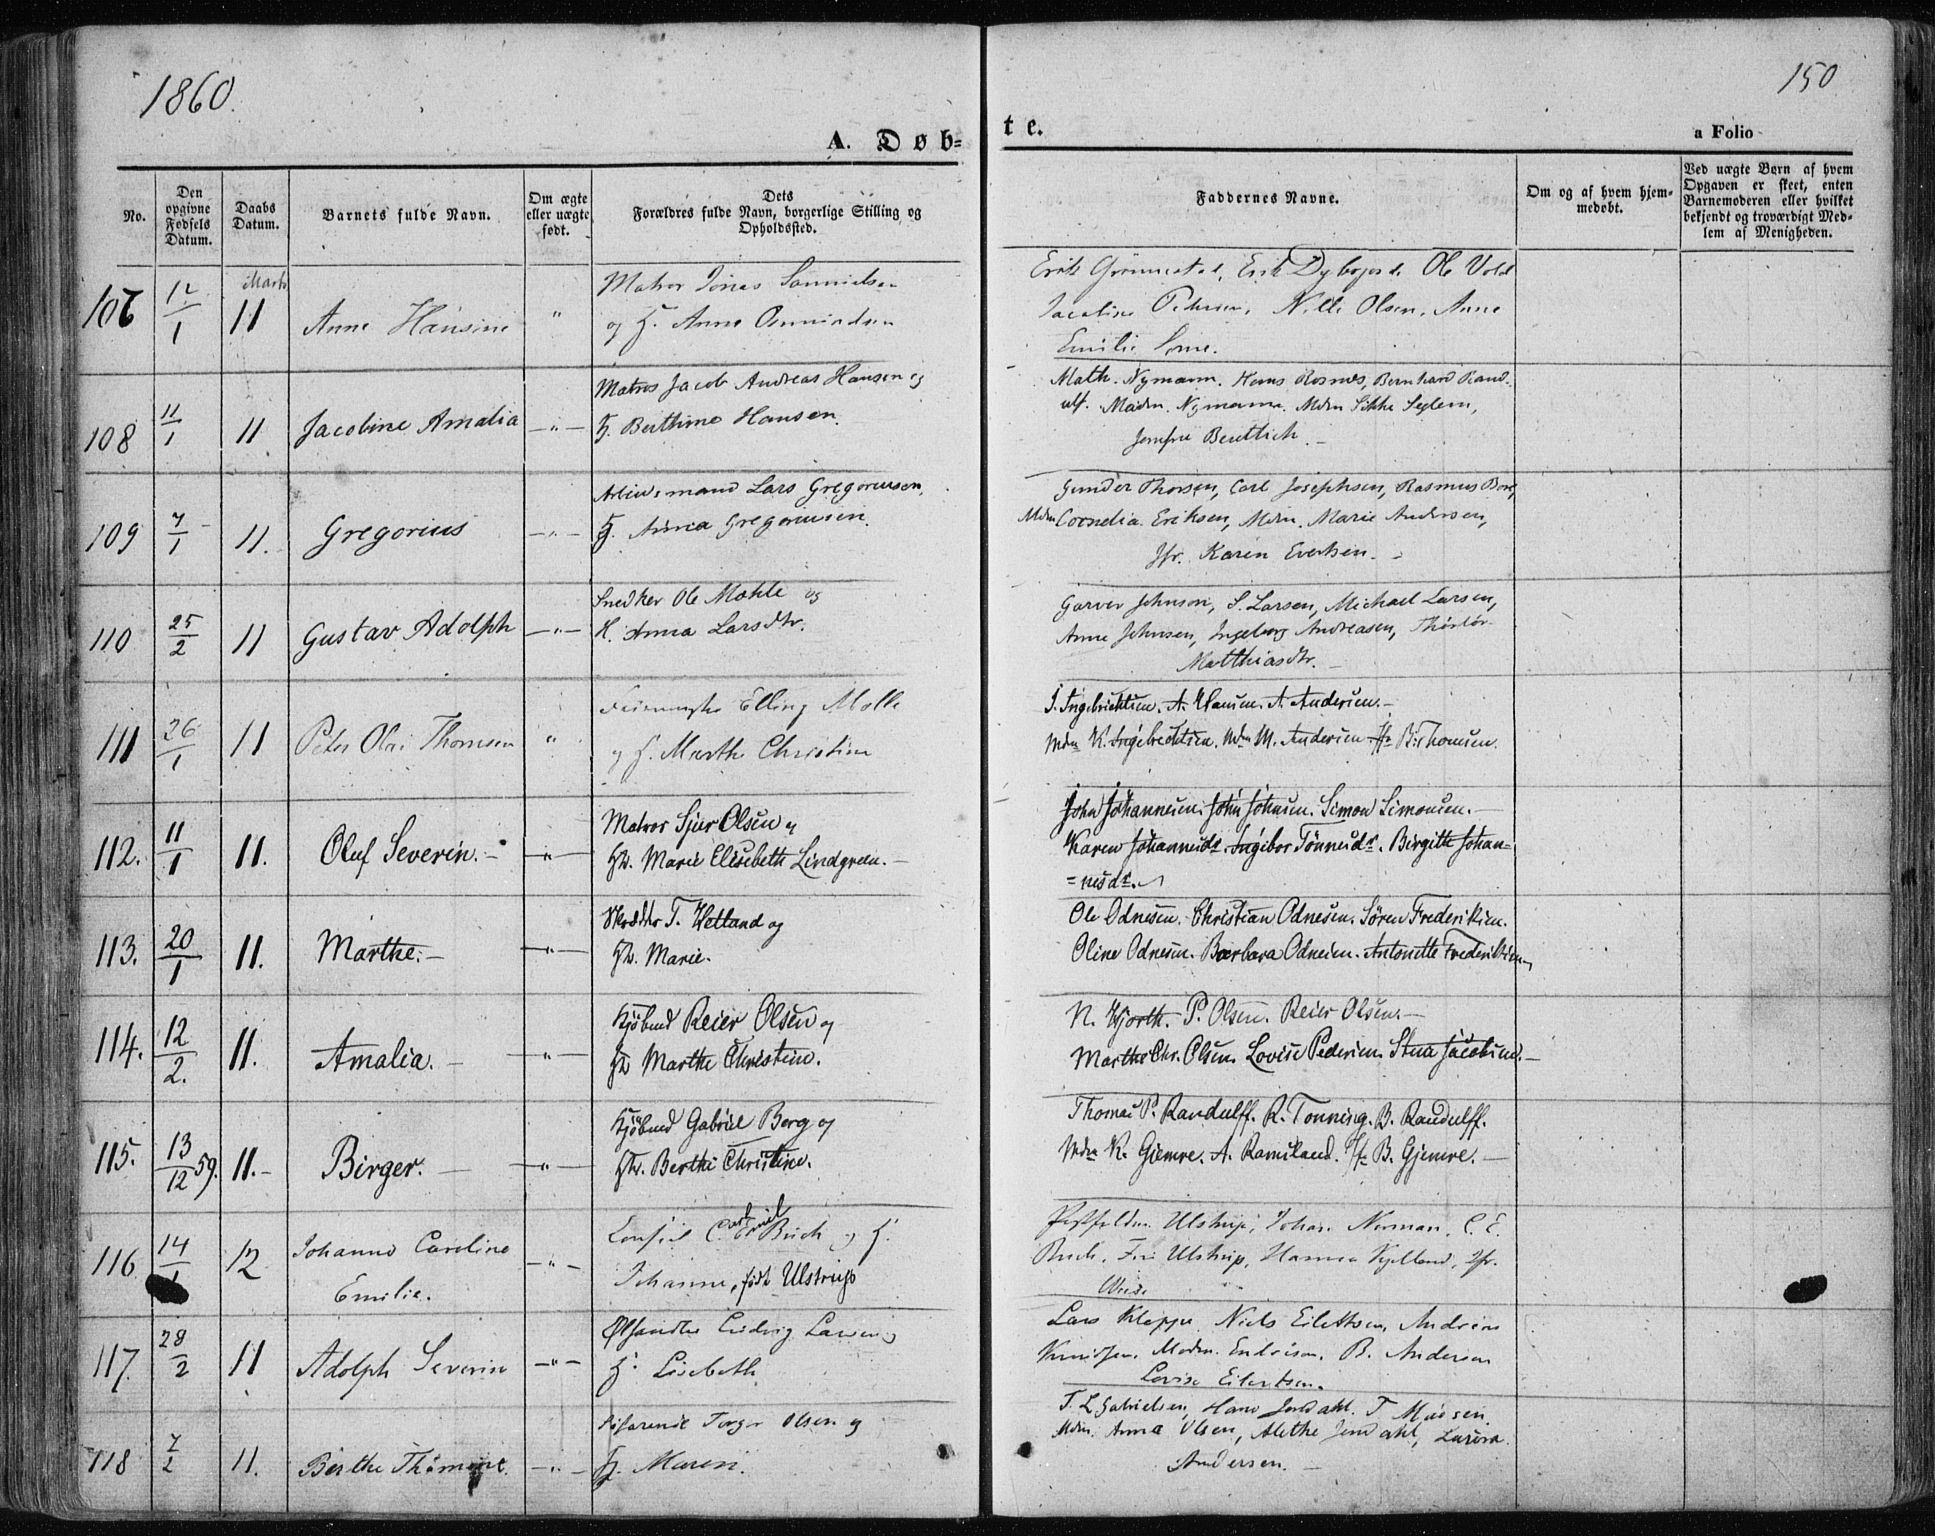 1860.
150
A. Døb=
te.
a Folio
No.
Den opgivne Fødsels Datum.
Daabs Datum.
Barnets fulde Navn.
Om ægte eller uægte født.
Dets Forældres fulde Navn, borgerlige Stilling og Opholdssted.
Faddernes Navne.
Om og af hvem hjemmedøbt.
Ved uægte Barn af hvem Opgaven er skeet, enten Barnemoderen eller hvilket bekjendt og troværdigt Medlem af Menigheden.
107 12/1 Marts 11 Anne Hansine "
Matros Jonas Samuelsen
og H. Anne Osmundsen
Erik Grönnestad, Erik Dybojord. Ole Vold
Jacobine Pedersen, Nille Olsen, Anne
Emilie
108 11/1 11 Jacobine Amalia —"—
Matros Jacob Andreas Hansen og
H. Berthine Hansen.
Math. Nymann. Hans Rosnes, Bernhard Rand-
ulf. Madm. Nymann. Mdm Sikke Seglem,
Jomfru Benttich. —
109 7/1 11. Gregorius —"—
Arbeidsmand Lars Gregoriusen,
H. Anna Gregoriusen.
Gunder Thorsen, Carl Josephsen, Rasmus Bore,
Mdm Cornelia Eriksen, Mdm. Marie Andersen,
Jfr. Karen Evertsen. —
110 25/2 11 Gustav Adolph —"—
Snedker Ole Mæhle og
H. Anna Larsdtr.
Garver Johnson, S. Larsen, Michael Larsen,
Anne Johnsen, Ingeborg Andreasen,
Matthiasdtr. —
111 26/1 11 Peter Olai Thomsen "
Elling Molle
og H. Marthe Christine
I. Ingebrichtsen. A. Hansen. A. Andersen. —
Mdm K. Ingebrechtsen. Mdm M. Andersen Jfr B. Thomsen.
112. 11/1 11. Oluf Severin. — —"—
Matros Sjur Olsen og
H. Marie Elisebeth Lindgreen. —
John Johannesen. John Johnsen. Simon Simonsen. —
Karen Johannesdr. Ingebor Tönnesdr. Birgitte Johan=
=nesdr.
113. 20/1 11. Marthe. — —"—
Skrædder T. Hetland og
H. Marie.
Ole Odnesen. Christian Odnesen. Sören Frederiksen.
Oline Odnesen. Barbara Odnesen. Antonette Frederiksen
114. 12/2. 11. Amalia. — —"—
Kjöbmd Reier Olsen og
H. Marthe Christine.
N. Hjorth. P. Olsen. Reier Olsen. —
Marthe Chr. Olsen. Lovise Pedersen. Stina Jacobsen. —
115. 13/12 59. 11. — Birger. — —"—
Kjöbmd Gabriel Berg og
H. Berthe Christine.
Thomas P. Randulff. R. Tonning. B. Randulff.
Mdm K. Gjemre. A. Ramsland. Jfr B. Gjemre. —
116 14/1 12 Johanne Caroline —"—
Emilie.
Consul Carl Emil Buch og H.
Johanne, født Ulstrup
Ulstrup, Johan Norman, C. E.
Buch. Fru Ulstrup, Hanna Kjelland, Jfr.
117. 28/2 11 Adolph Severin —"—
Ølhandler Ludvig Larsen og
H. Lisebeth
Lars Kleppe Niels Eilertsen, Andreas
Knudsen Madm. Endresen. B. Andersen
Lovise Eilertsen.
118 7/2 11. Berthe Thomine. —"—
Søfarende Torger Olsen og
H. Maren.
T. L Gabrielsen, Hans Jondahl. T
Mdm. Anna Olsen, Alethe Jondahl,
Andersen. —